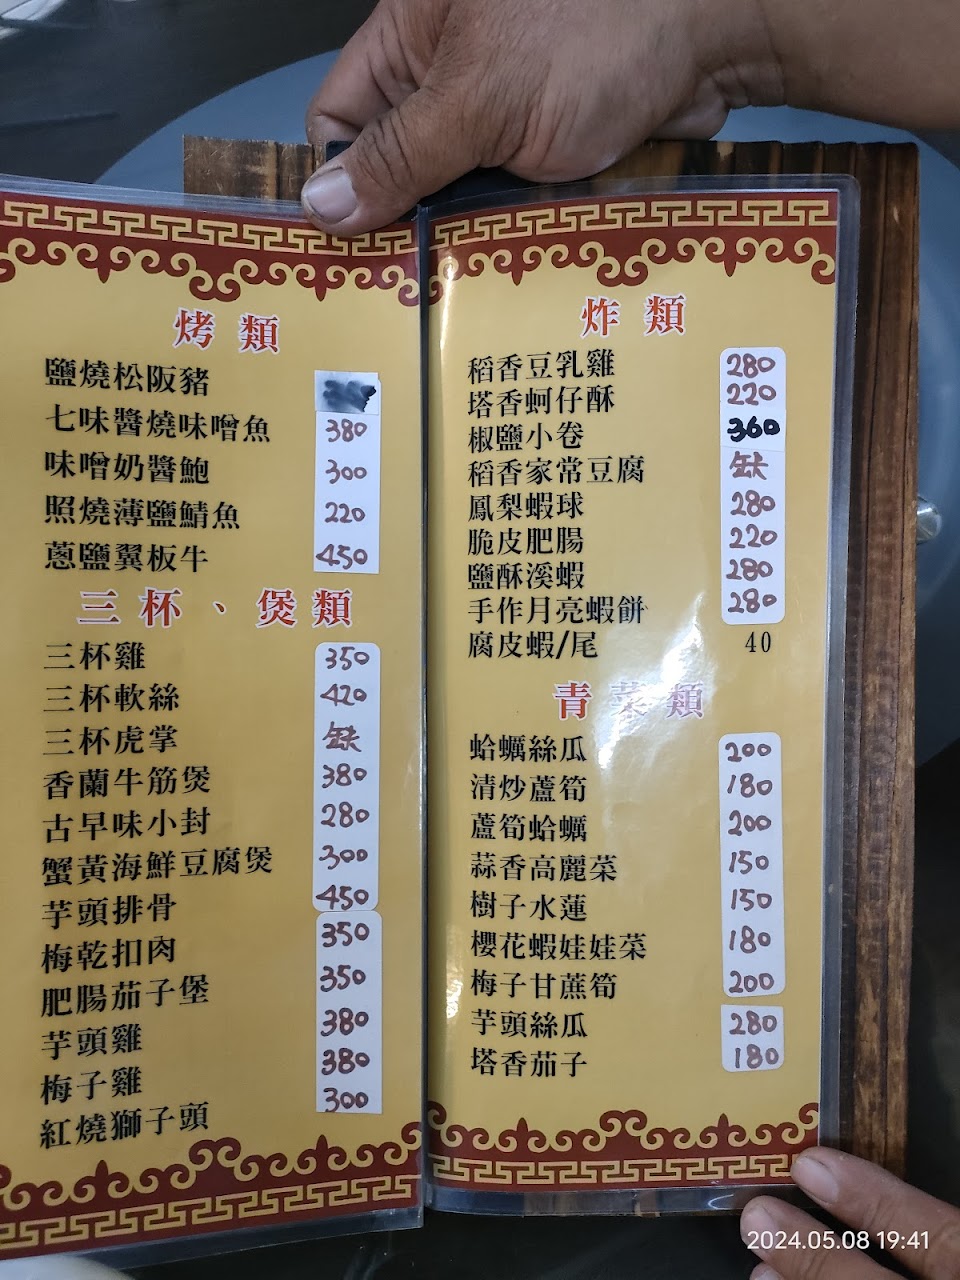 烤類
鹽燒松阪豬
七味醬燒味噌魚 380
味噌奶醬鮑 300
照燒薄鹽鯖魚 220
蔥鹽翼板牛 450
三杯、煲類
三杯雞 350
三杯軟絲 420
三杯虎掌 缺
香蘭牛筋煲 380
古早味小封 280
蟹黃海鮮豆腐煲 300
芋頭排骨 450
梅乾扣肉 350
肥腸茄子堡 350
芋頭雞 380
梅子雞 380
紅燒獅子頭 300
炸類
稻香豆乳雞 280
塔香蚵仔酥 220
椒鹽小卷 360
稻香家常豆腐 缺
鳳梨蝦球 280
脆皮肥腸 220
鹽酥溪蝦 280
手作月亮蝦餅 280
腐皮蝦/尾 40
青菜類
蛤蠣絲瓜 200
清炒蘆筍 180
蘆筍蛤蠣 200
蒜香高麗菜 150
樹子水蓮 150
櫻花蝦娃娃菜 180
梅子甘蔗筍 200
芋頭絲瓜 280
塔香茄子 180
2024.05.08 19:41